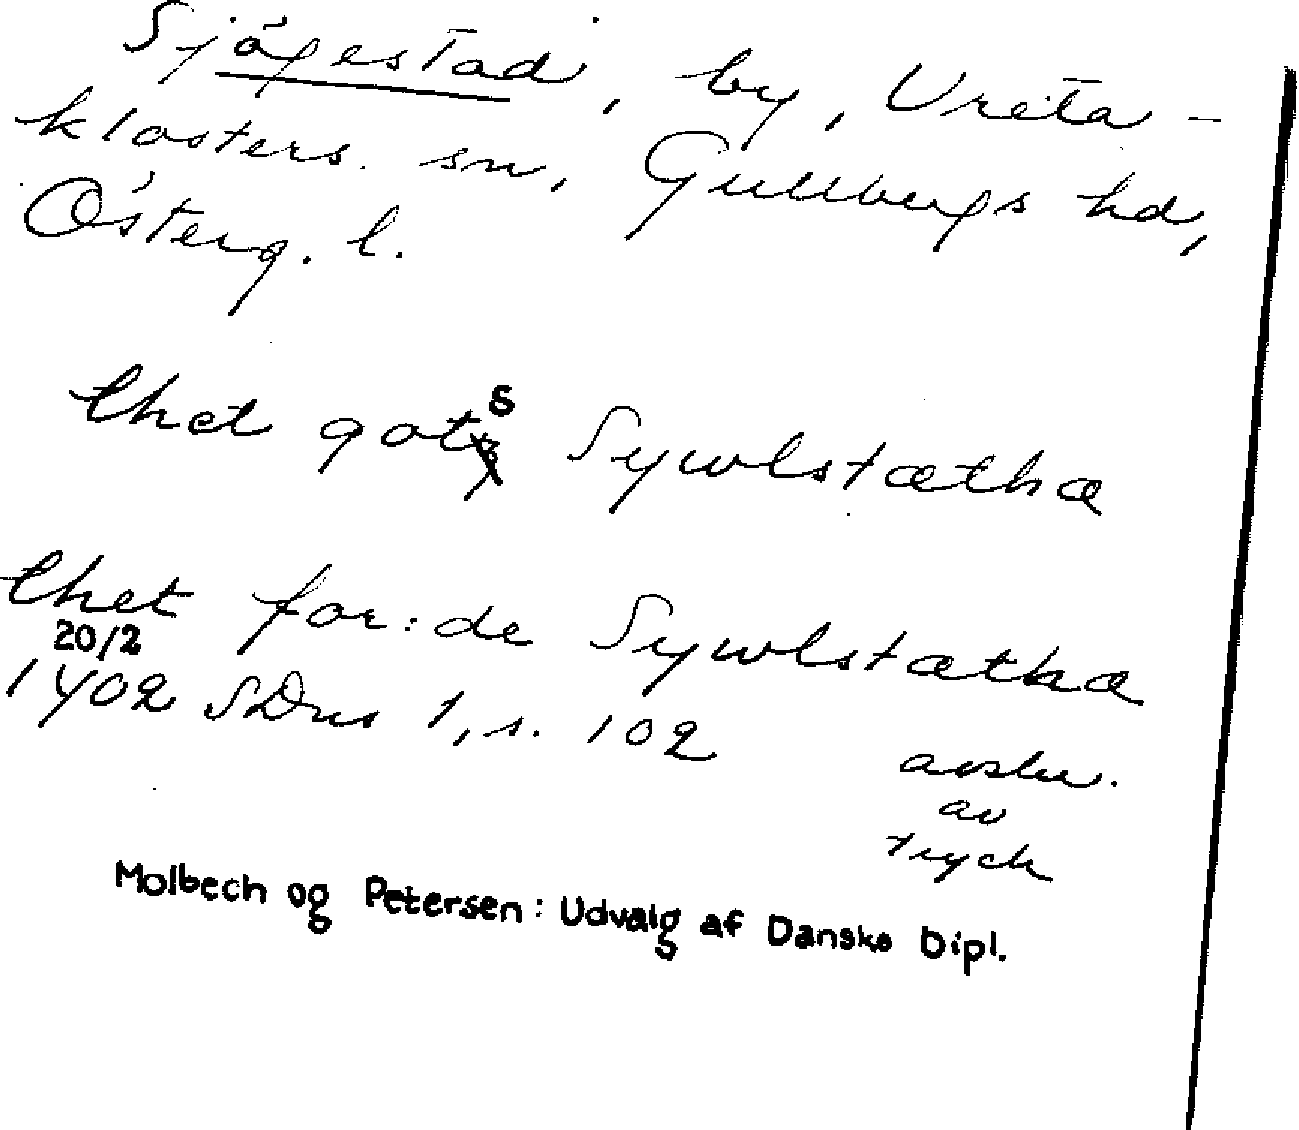 Sjögestad, by, Vreta-
klosters sn, Gullbergs hd,
Österg. l.
thet gots Sywlstætha
thet for:de Sywlstætha
20/2
1402 SDns 1, s. 102
avskr.
av
tryck
Molbech og Petersen: Udvalg af Danske Dipl.